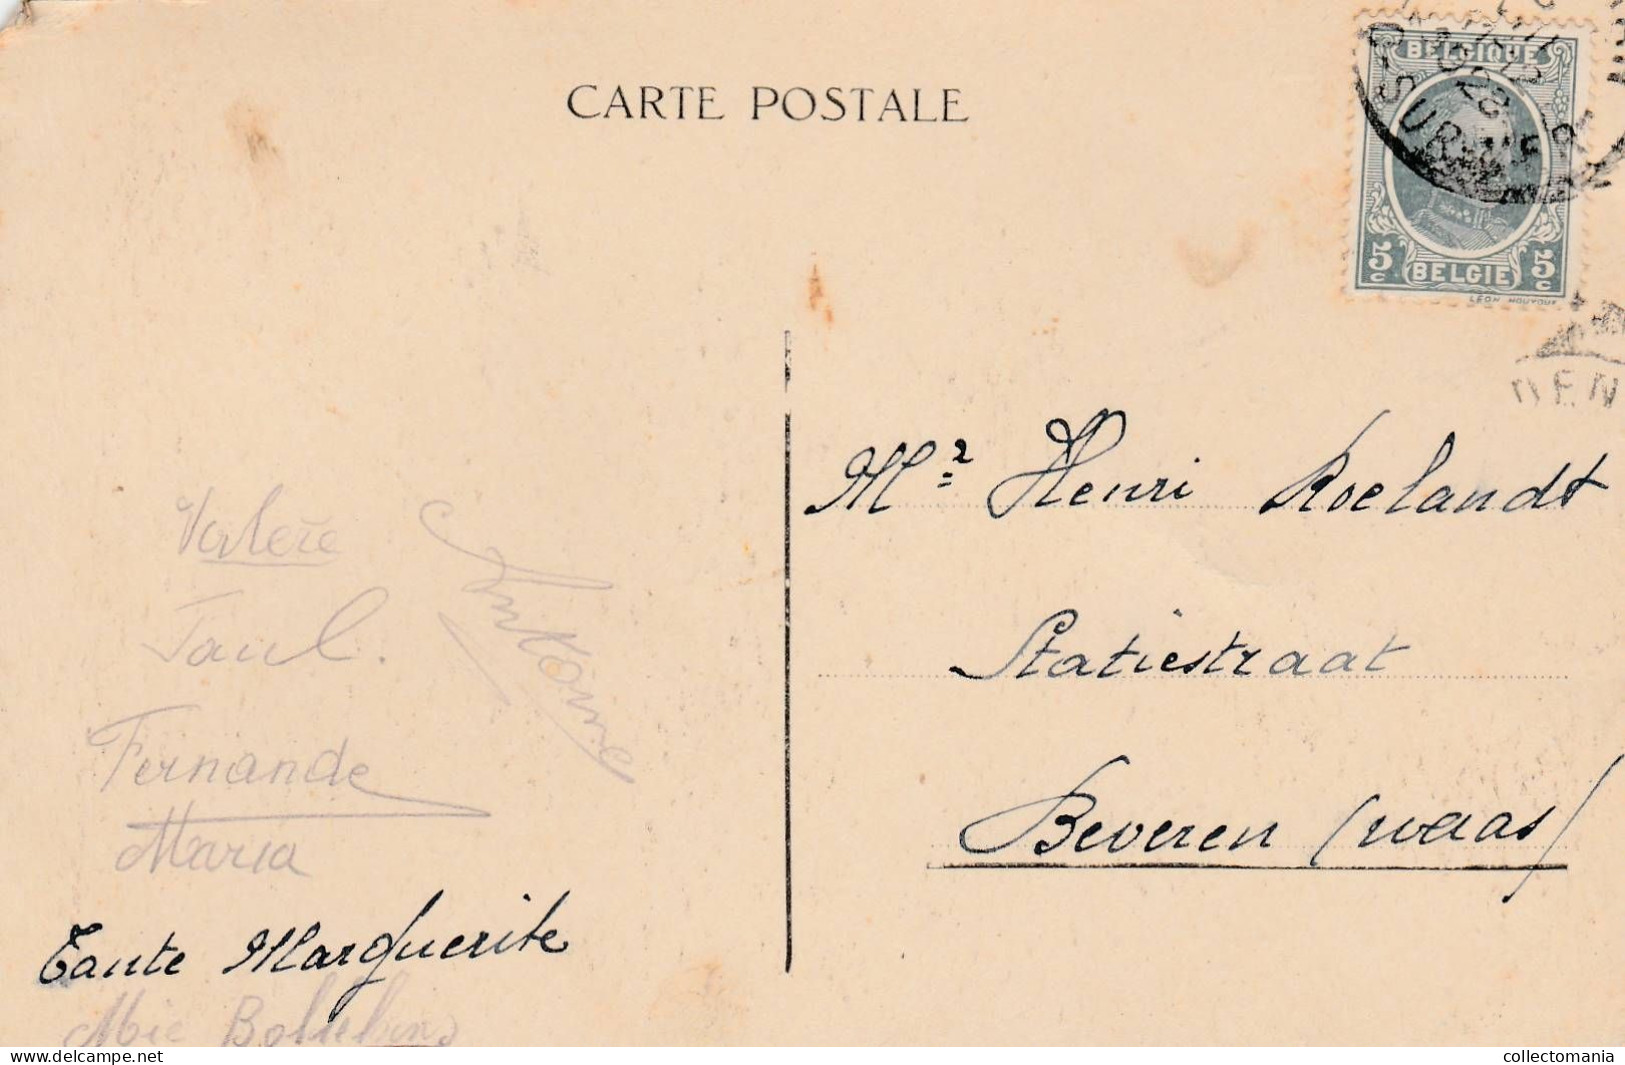 CARTE POSTALE
BELGIQUE
5c BELGIE 5c
Mr Henri Roelandt
Statiestraat
Beveren (waas)
Valère
Paul.
Antoine
Fernande
Maria
Tante Marguerite
www.delcampe.net
collectomania